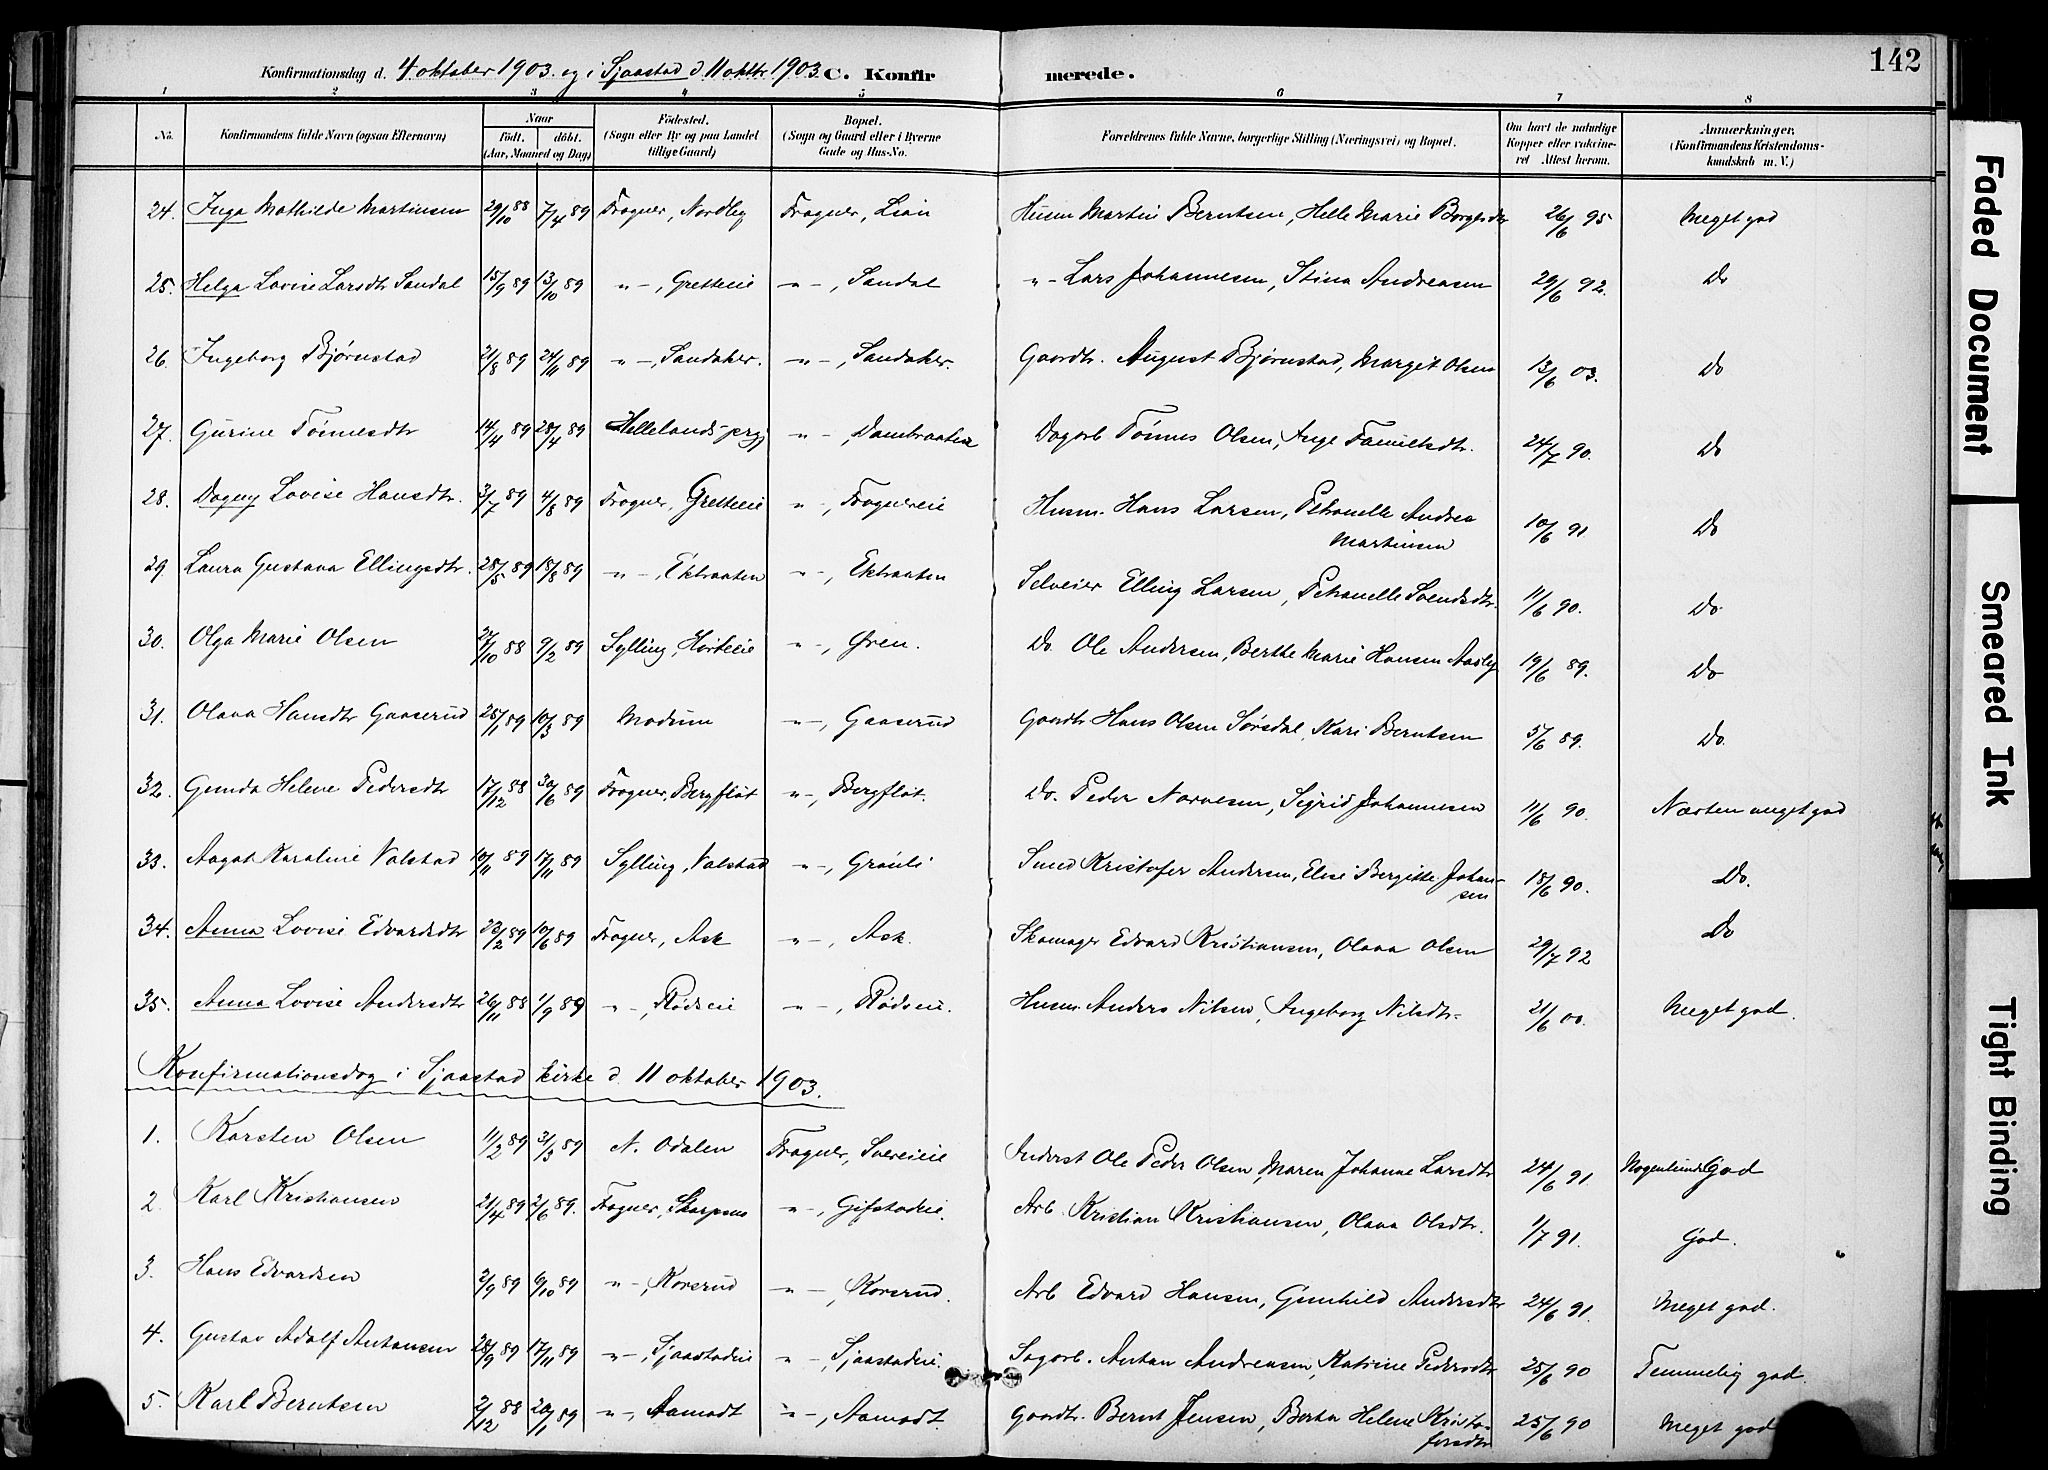 Konfirmationsdag d. 4. oktober 1903. og i Sjaastad d. 11 oktbr. 1903. C. Konfirmerede. 142
1 2 3 4 5 6 7 8
No. Konfirmandens fulde Navn (ogsaa Efternavn) Naar födt. döbt. (Aar, Maaned og Dag) Födested. (Sogn eller By og paa Landet tillige Gaard) Bopæl. (Sogn og Gaard eller i Byerne Gade og Hus-No. Forældrenes fulde Navne, borgerlige Stilling (Næringsvei) og Bopæl. Om havt de naturlige Kopper eller vakcineret Attest herom. Anmærkninger. (Konfirmandens Kristendomskundskab m. V.)
24. Inga Mathilde Martinsen 29/10 88 7/4 89 Frogner, Nordby Frogner, Lian Husm Martin Berntsen, Helle Marie Borgersdtr 26/6 95 Meget god
25. Helga Lovise Larsdtr Sandal 15/9 89 13/10 89 -"-, Gretteeie -"-, Sandal -"- Lars Johannesen, Stina Andreasen 29/6 92. Do
26. Ingeborg Bjørnstad 21/8 89 24/11 89 -"-, Sandaker. -"-, Sandaker. Gaardbr. August Bjørnstad, Marget Olsen 13/6 03. Do
27. Gurine Tönnesdtr 14/4 89 28/4 89 Hellelands prgj -"-, Dambraaten Dagarb Tönnes Olsen, Inge Tanielsdtr. 24/7 90. Do
28. Dagny Lovise Hansdtr. 3/7 89 4/8 89 Frogner, Gretteeie -"-, Frognereie Husm. Hans Larsen, Petranelle Andrea Martinsen 10/6 91 Do
29. Laura Gustava Ellingsdtr. 28/5 89 18/8 89 -"-, Ekbraaten -"-, Ekbraaten Selveier Elling Larsen, Petranelle Svendsdtr. 11/6 90. Do
30. Olga Marie Olsen 27/10 88 9/2 89 Sylling, Hörteeie -"-, Øren. Do Ole Andersen, Berthe Marie Hansen Aasby 19/6 89. Do
31. Olava Hansdtr Gaaserud 25/1 89 10/3 89 Modum -"-, Gaaserud Gaardbr Hans Olsen Sørsdal, Kari Berntsen 5/6 89. Do.
32. Gunda Helene Pedersdtr 17/12 88 30/6 89 Frogner, Bergflöt -"-, Bergflöt. Do. Peder Narvesen, Sigrid Johannesen 11/6 90. Næsten meget god
33. Aagot Karoline Valstad 10/11 89 17/11 89 Sylling, Valstad -"-, Grönli Smed Kristofer Andersen, Elise Bergitte Johansen 18/6 90. Do.
34. Anna Lovise Edvardsdtr 23/2 89 10/6 89 Frogner, Ask -"-, Ask. Skomager Edvard Kristiansen, Olava Olsen 29/7 92 Do
35. Anna Lovise Andersdtr 26/11 88 1/9 89 -"-, Rödseie -"-, Rödseie. Husm. Anders Nilsen, Ingeborg Nilsdtr. 21/6 00. Meget god.
Konfirmationsdag i Sjaastad kirke d. 11 oktober 1903.
1. Karsten Olsen 11/2 89 3/3 89 N. Odalen Frogner, Svereieie Inderst Ole Peder Olsen, Maren Johanne Larsdtr 24/6 91. Nogenlunde God
2. Karl Kristiansen 21/4 89 2/6 89. Frogner, Skarpsno -"-, Gifstadeie. Arb. Kristian Kristiansen, Olava Olsdtr. 1/7 91. God.
3. Hans Edvardsen 2/9 89 6/10 89 -"-, Korsrud -"-, Korsrud. Arb Edvard Hansen, Gunhild Andersdtr 24/6 91. Meget god.
4. Gustav Adolf Antonsen 28/9 89 17/11 89 -"-, Sjaastadeie -"-, Sjaastadeie. Sagarb. Anton Andreasen, Katrine Pedersdtr 25/6 90 Temmelig god.
5. Karl Berntsen 2/12 88 20/1 89 -"-, Aamodt -"-, Aamodt. Gaardbr. Bernt Jensen, Berta Helene Kristoffersdtr 25/6 90 Meget god
Faded Document
Smeared Ink
Tight Binding